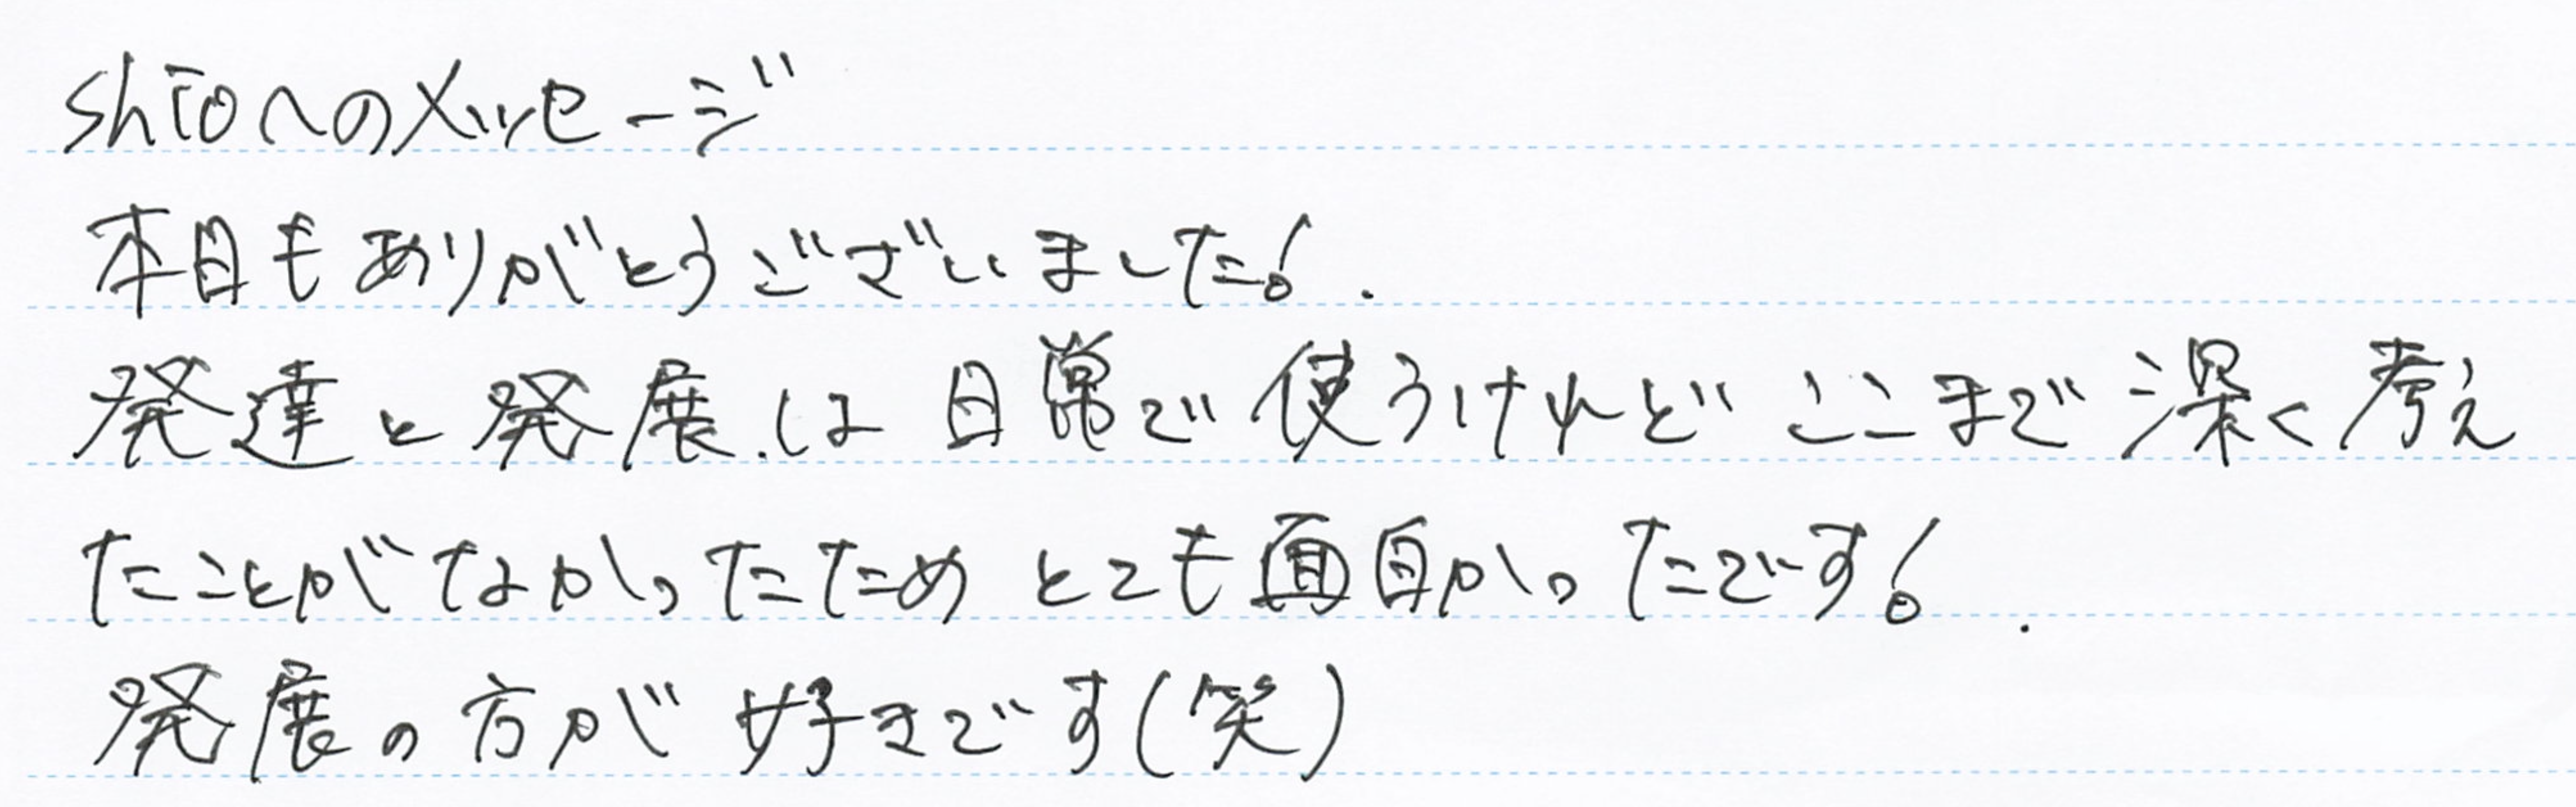 shioへのメッセージ
本日もありがとうございました!
発達と発展は日常で使うけれどここまで深く考え
たことがなかったためとても面白かったです!
発展の方が好きです(笑)